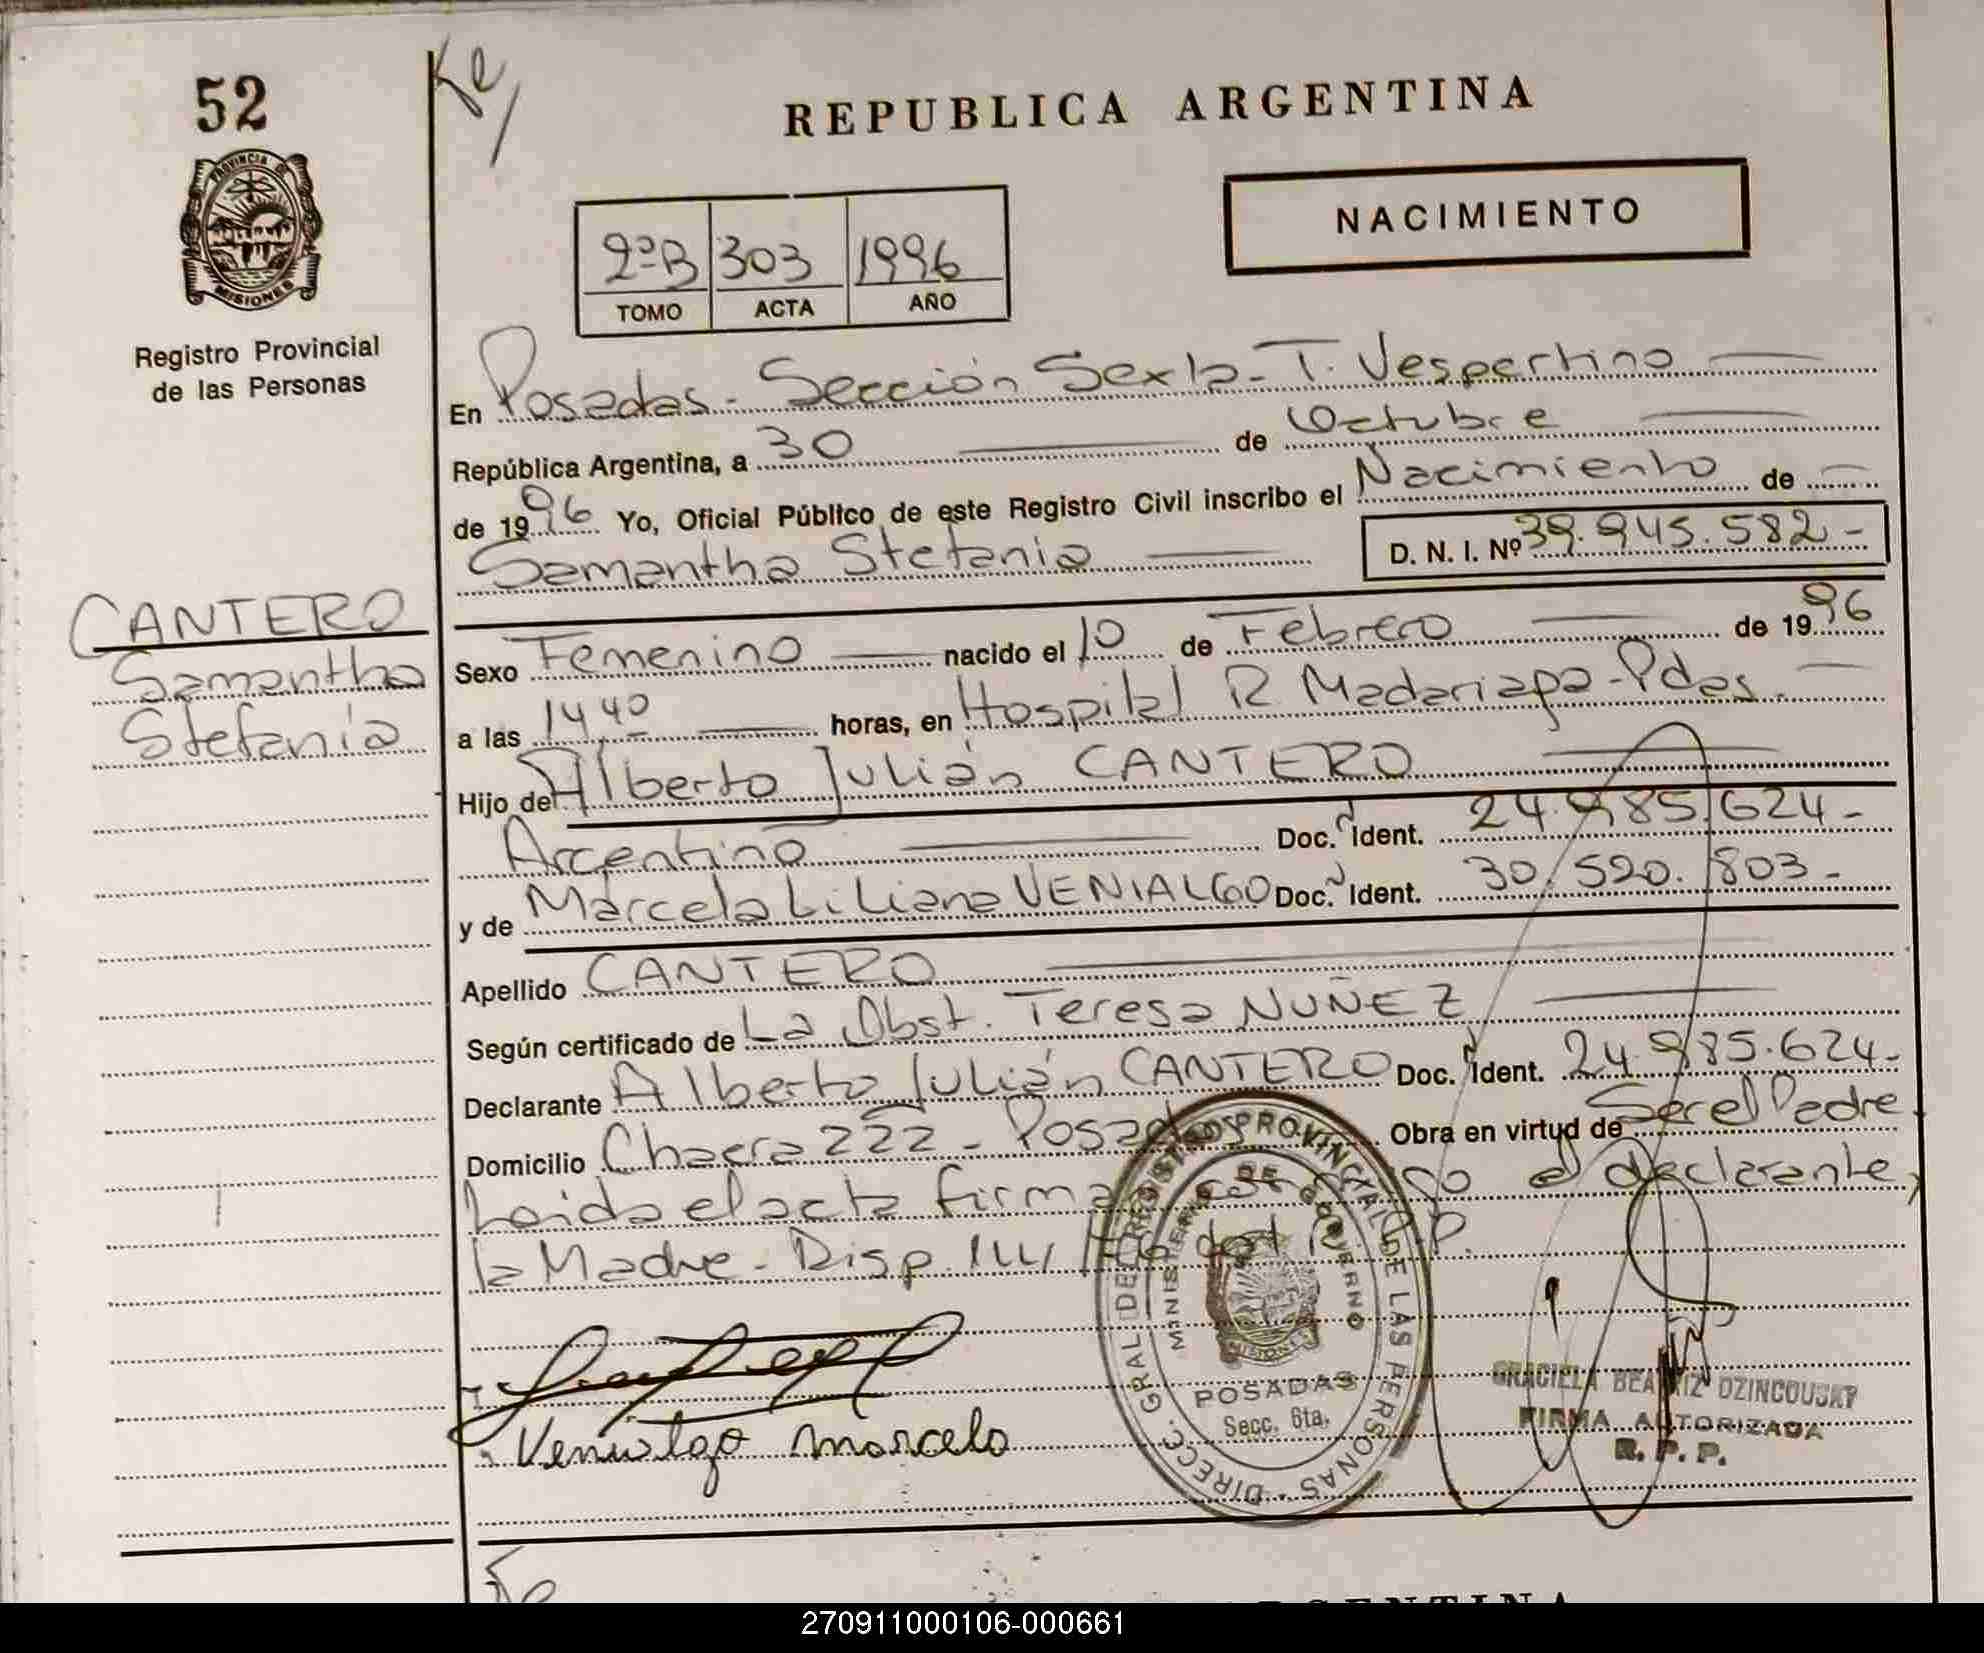 52
Ke/
REPUBLICA ARGENTINA
PROVINCIA DE MISIONES
NACIMIENTO
2ºB 303 1996
TOMO ACTA AÑO
Registro Provincial
de las Personas
En Posadas - Sección Sexta - T. Vespertino
República Argentina, a 30 de Octubre
de 1996 Yo, Oficial Público de este Registro Civil inscribo el Nacimiento de
Samantha Stefania D. N. I. Nº 39.945.582-
CANTERO
Samantha
Stefanía
Sexo Femenino nacido el 10 de Febrero de 1996
a las 14,40 horas, en Hospital R Madariaga - Pdas.
Hijo de Alberto Julián CANTERO
Argentino Doc. Ident. 24.985.624-
y de Marcela Liliana VENIALGO Doc. Ident. 30.520.803-
Apellido CANTERO
Según certificado de La Obst. Teresa NUÑEZ
Declarante Alberto Julián CANTERO Doc. Ident. 24.985.624-
Domicilio Chacra 222 - Posadas Obra en virtud de Ser el Padre.
Leida el acta firma el declarante,
la Madre - Disp.
DIRECC. GRAL DEL REGISTRO PROVINCIAL DE LAS PERSONAS
MINISTERIO DE GOBIERNO
MISIONES
POSADAS
Secc. 6ta.
Venialgo Marcela
GRACIELA BEATRIZ DZINCOUSKY
FIRMA AUTORIZADA
R. P. P.
270911000106-000661